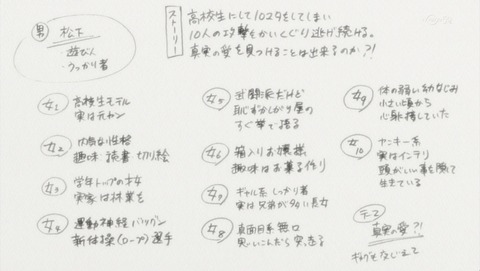 男 松下
・遊び人
・うっかり者
ストーリー
高校生にして10又をしてしまい
10人の攻撃をかいくぐり逃げ続ける。
真実の愛を見つけることは出来るのか?!
女1 高校生モデル
実は元ヤン
女2 内気な性格
趣味 読書 切り絵
女3 学年トップの才女
実家は林業を
女4 運動神経バツグン
新体操(ロープ)選手
女5 武闘派だけど
恥ずかしがり屋の
すぐ拳で語る
女6 箱入りお嬢様
趣味はお菓子作り
女7 ギャル系 しっかり者
実は兄弟が多い長女
女8 真面目系 無口
思いこんだら 突っ走る
女9 体の弱い幼なじみ
小さい頃から
心配していた
女10 ヤンキー系
実はインテリ
頭がいい事を隠して
生きている
テーマ
真実の愛?!
ギャグをまじえて